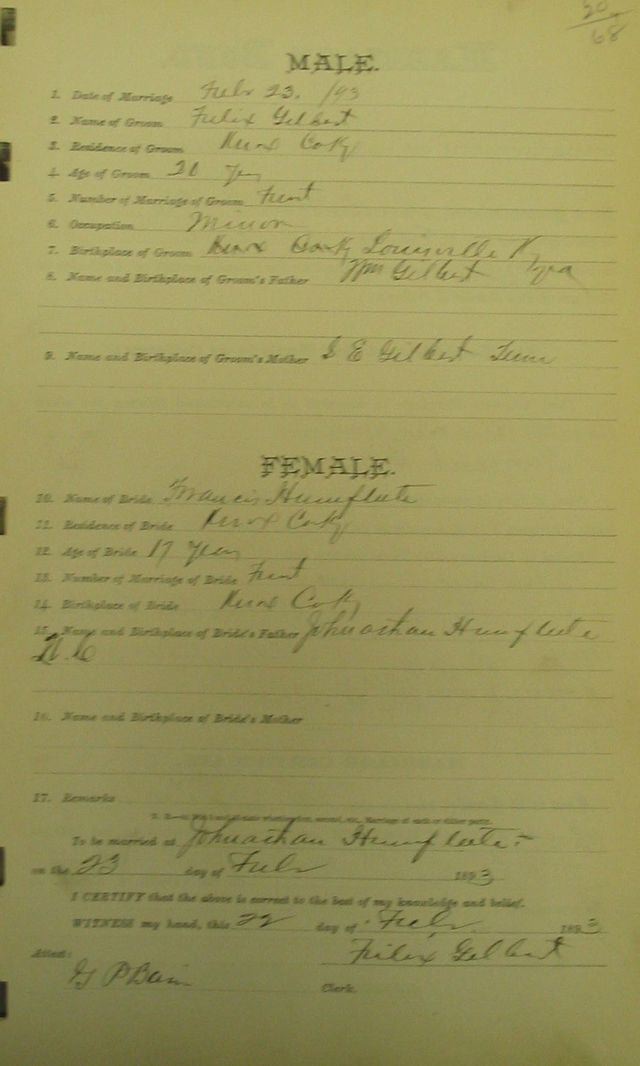 20
68
MALE.
1. Date of Marriage Febr 23. /93
2. Name of Groom Felix Gilbert
3. Residence of Groom Knox Co Ky
4. Age of Groom 20 Yrs
5. Number of Marriage of Groom First
6. Occupation
7. Birthplace of Groom Louisville Ky
8. Name and Birthplace of Groom's Father Wm Gilbert
9. Name and Birthplace of Groom's Mother S E Gilbert Tenn
FEMALE.
10. Name of Bride Francis Humfleete
11. Residence of Bride Knox Co Ky
12. Age of Bride 17 Years
13. Number of Marriage of Bride First
14. Birthplace of Bride Knox Co Ky
15. Name and Birthplace of Bride's Father Johnathan Humfleete
N.C
16. Name and Birthplace of Bride's Mother
17. Remarks
To be married at Johnathan Humfleete
on the 23 day of Febr 1893
I CERTIFY that the above is correct to the best of my knowledge and belief.
WITNESS my hand, this 22 day of Febr 1893
Felix Gilbert
Attest:
G P Bain Clerk.